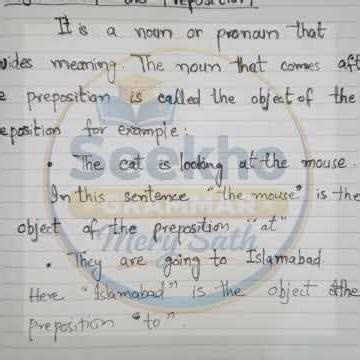 and Preposition)
It is a noun or pronoun that
vides meaning. The noun that comes aft
e preposition is called the object of the
eposition for example:
• The cat is looking at the mouse.
In this sentence "the mouse" is the
object of the preposition "at"
• They are going to Islamabad.
Here "Islamabad" is the object the
preposition "to".
Seekho
GRAMMAR
Mery Sath